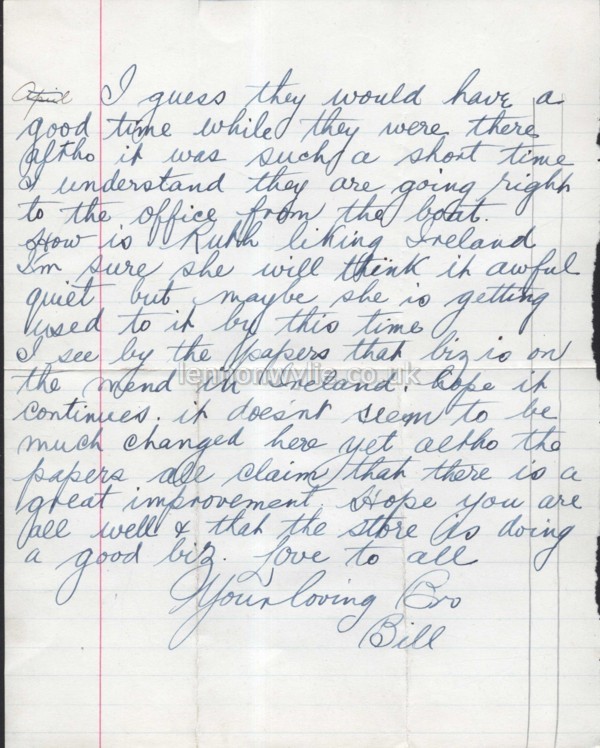 April I guess they would have a
good time while they were there
altho it was such a short time
I understand they are going right
to the office from the boat.
How is Ruth liking Ireland
I'm sure she will think it awful
quiet but maybe she is getting
used to it by this time
I see by the papers that biz is on
the mend in Ireland hope it
lennonwylie.co.uk
continues. it doesn't seem to be
much changed here yet altho the
papers all claim that there is a
great improvement. Hope you are
all well & that the store is doing
a good biz. Love to all
Your loving Bro
Bill